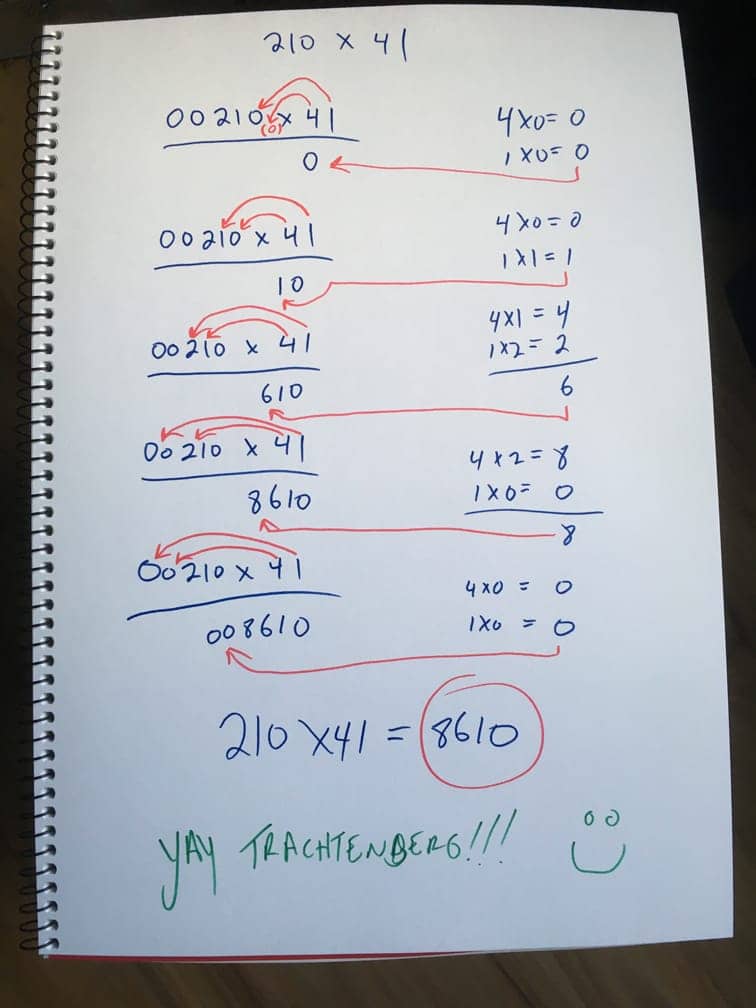 210 x 41
00210 x 41
(0)
4x0= 0
1x0= 0
0
00210 x 41
4x0= 0
1x1= 1
10
00210 x 41
4x1 = 4
1x2= 2
610
6
00210 x 41
4x2= 8
1x0= 0
8610
8
00210 x 41
4x0 = 0
1x0 = 0
008610
210 x41 = 8610
YAY TRACHTENBERG!!!